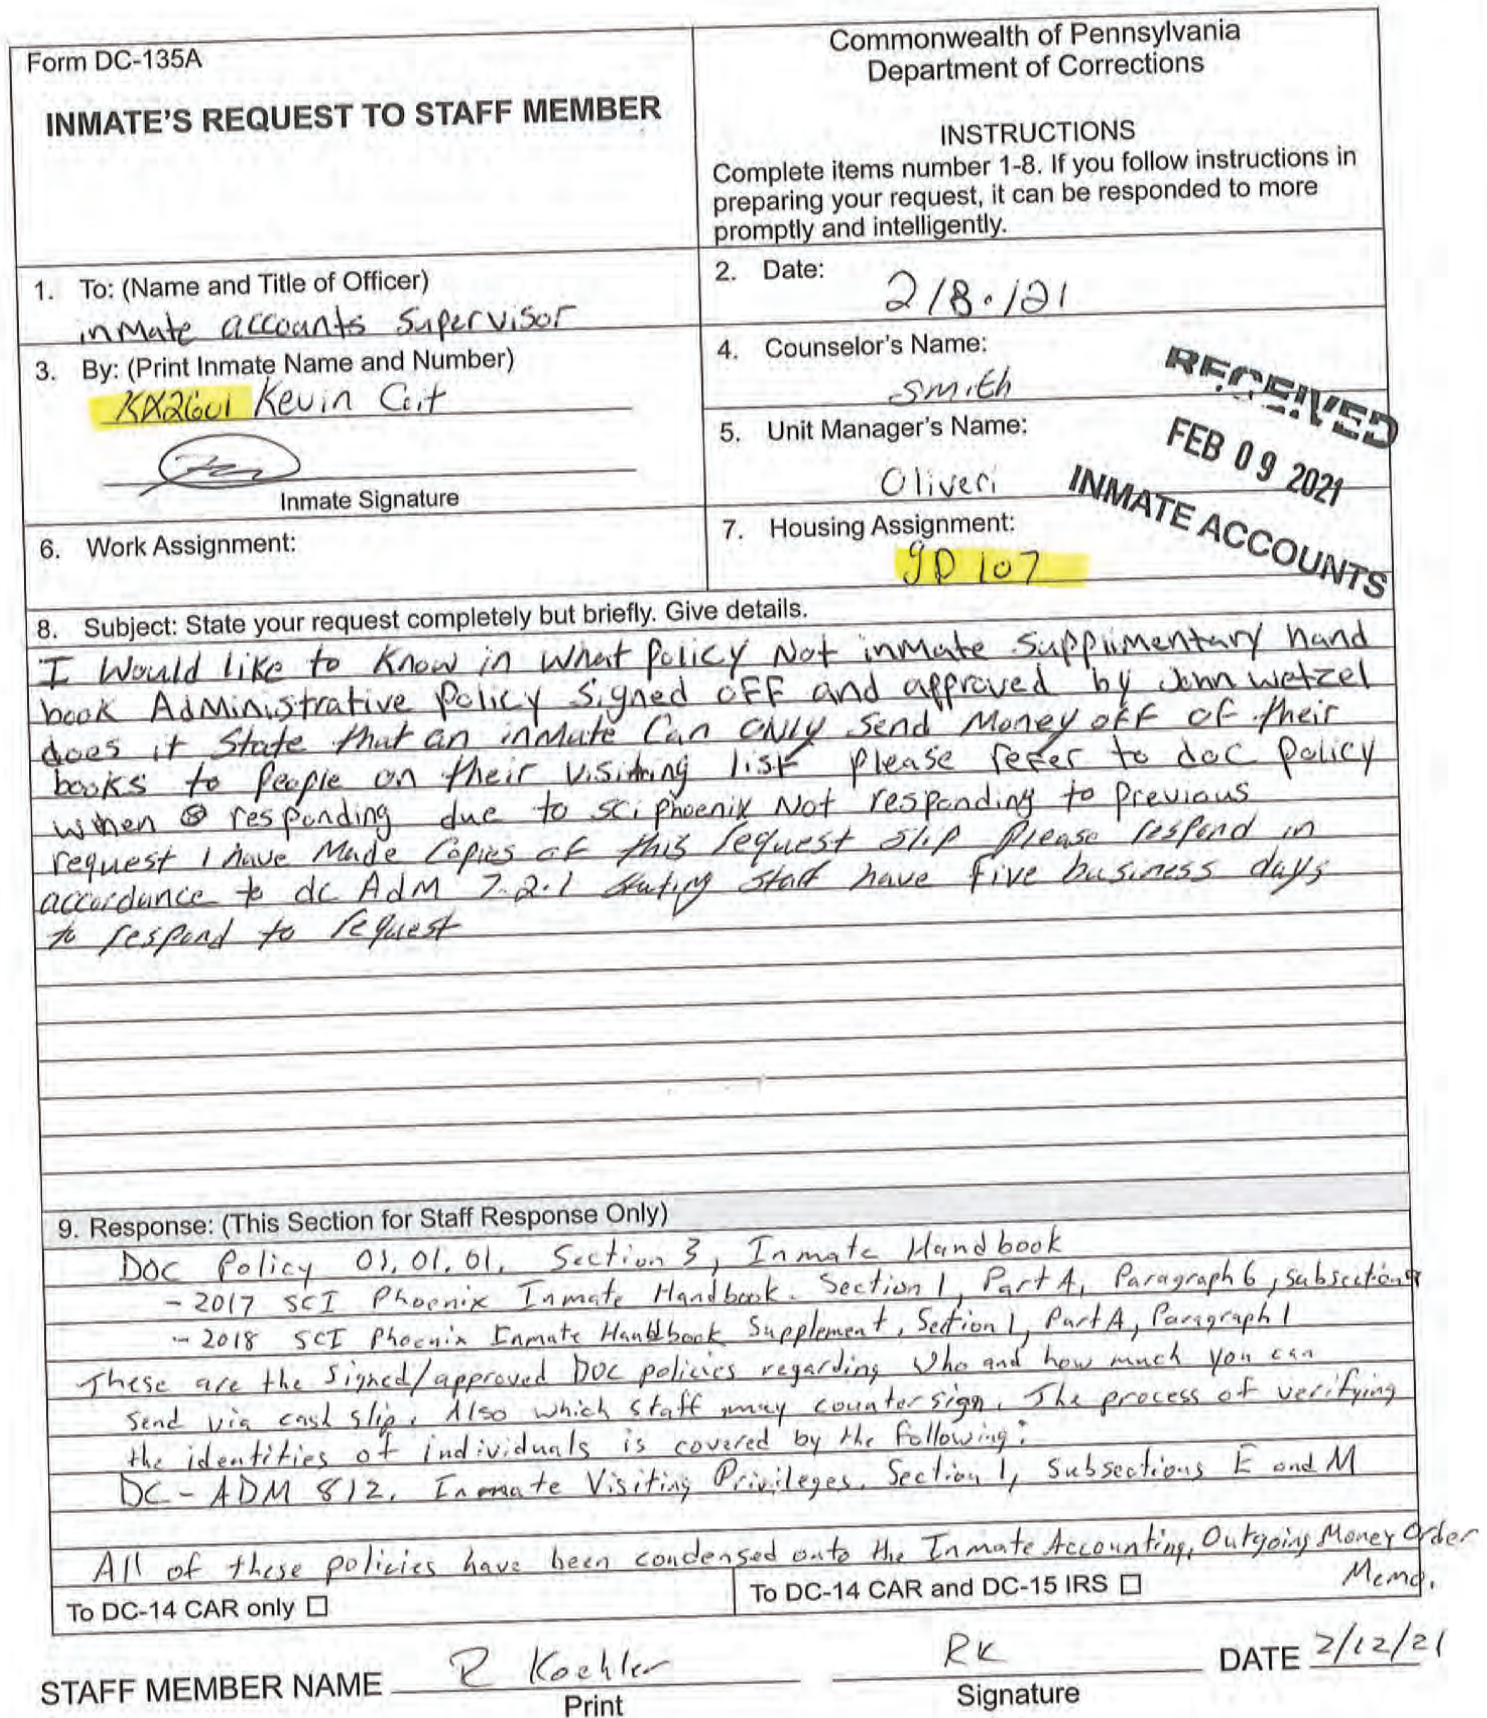 Form DC-135A
INMATE'S REQUEST TO STAFF MEMBER
Commonwealth of Pennsylvania
Department of Corrections
INSTRUCTIONS
Complete items number 1-8. If you follow instructions in
preparing your request, it can be responded to more
promptly and intelligently.
1. To: (Name and Title of Officer)
inmate accounts supervisor
2. Date:
2/8/21
3. By: (Print Inmate Name and Number)
Kevin
Inmate Signature
4. Counselor's Name:
Smith
5. Unit Manager's Name:
Oliveri
RECEIVED
FEB 09 2021
INMATE ACCOUNTS
6. Work Assignment:
7. Housing Assignment:
gD 107
8. Subject: State your request completely but briefly. Give details.
I Would like to Know in What Policy Not inmate Supplimentary hand
book Administrative Policy signed OFF and approved by John Wetzel
does it State that an inmate Can ONLY Send Money off of their
books to People on their visiting list please refer to doc Policy
when responding due to sci phoenix Not responding to Previous
request I have Made Copies of this request slip Please respond in
accordance to dc Adm 7.2.1 stating staff have five business days
to respond to request
9. Response: (This Section for Staff Response Only)
DOC Policy 03.01.01. Section 3, Inmate Handbook
- 2017 SCI Phoenix Inmate Handbook. Section 1, Part A, Paragraph 6, subsection
- 2018 SCI Phoenix Inmate Handbook Supplement, Section 1, Part A, Paragraph 1
These are the signed/approved DOC policies regarding who and how much you can
send via cash slip. Also which staff may countersign. The process of verifying
the identities of individuals is covered by the following:
DC-ADM 812, Inmate Visiting Privileges. Section 1, Subsections E and M
All of these policies have been condensed onto the Inmate Accounting, Outgoing Money Order
Memo.
To DC-14 CAR only ☐
To DC-14 CAR and DC-15 IRS ☐
STAFF MEMBER NAME R Koehler
Print
RK
Signature
DATE 2/12/21